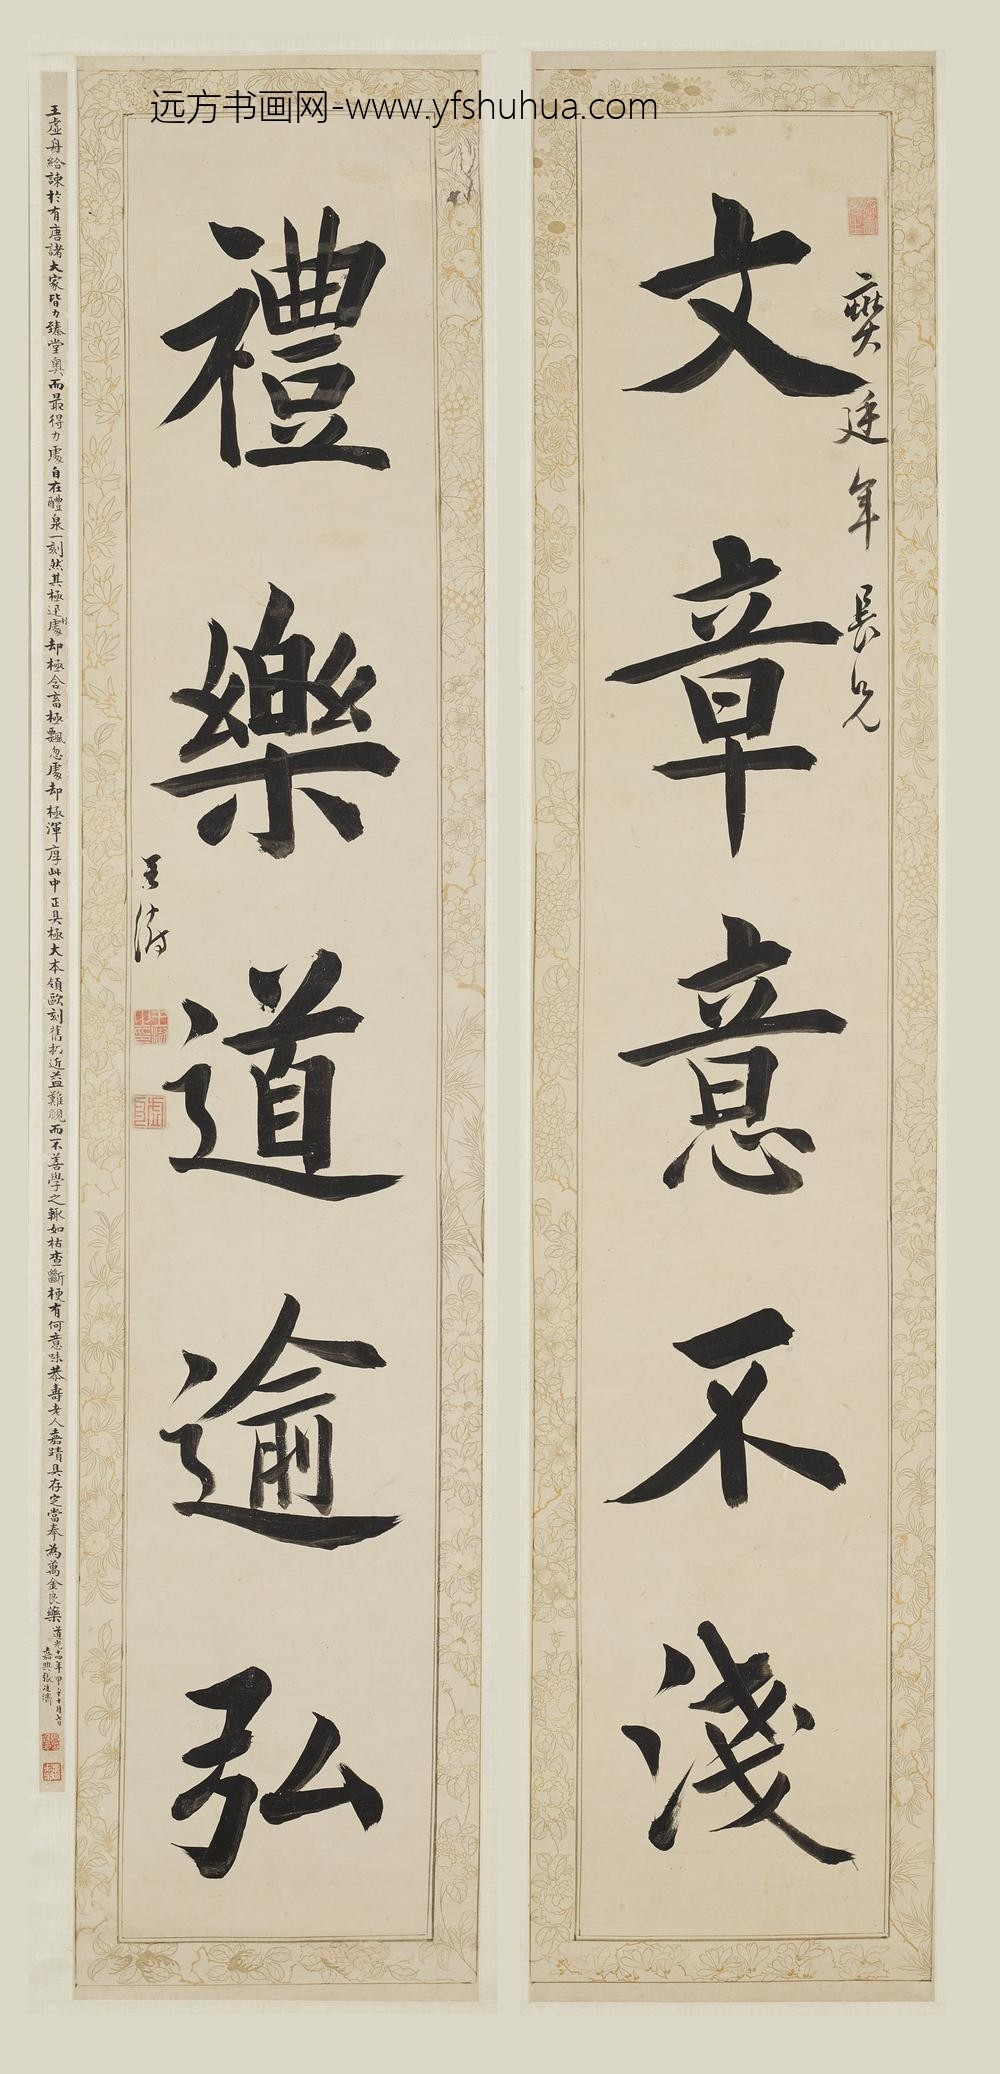 远方书画网-www.yfshuhua.com
文章意不淺
廷年長兄
禮樂道逾弘
王澍
王虛舟給諫於有唐諸大家皆力臻堂奧而最得力處自在醴泉一刻然其極迅處却極含畜極飄忽處却極渾厚此中正具極大本領歐刻舊拓近益難覯而不善學之輒如枯查斷梗有何意味恭壽老人嘉蹟具存定當奉為萬金良藥
道光十四年甲午十月七日
嘉興張廷濟